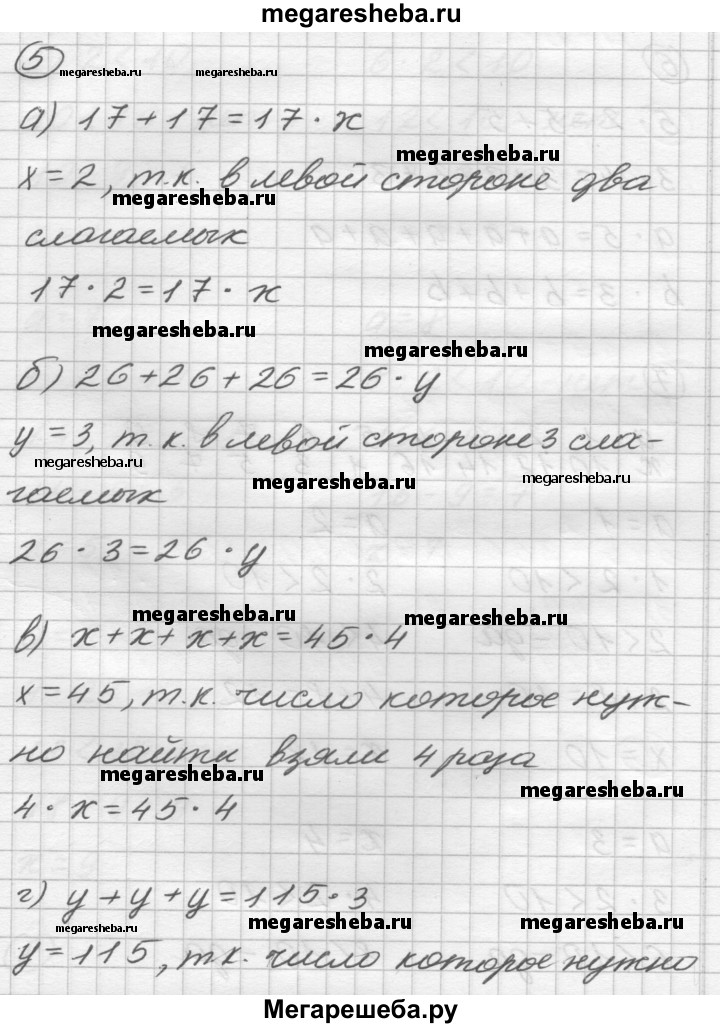 megaresheba.ru
5
megaresheba.ru megaresheba.ru
а) 17+17=17·x
megaresheba.ru
x=2, т.к. в левой стороне два
megaresheba.ru megaresheba.ru
слагаемых
17·2=17·x
megaresheba.ru megaresheba.ru
б) 26+26+26=26·y
y=3, т.к. в левой стороне 3 сла-
megaresheba.ru megaresheba.ru megaresheba.ru
гаемых
26·3=26·y
megaresheba.ru megaresheba.ru
в) x+x+x+x=45·4
x=45, т.к. число которое нуж-
но найти взяли 4 раза
megaresheba.ru megaresheba.ru
4·x=45·4
г) y+y+y=115·3
megaresheba.ru megaresheba.ru megaresheba.ru
y=115, т.к. число которое нужно
Мегарешеба.ру